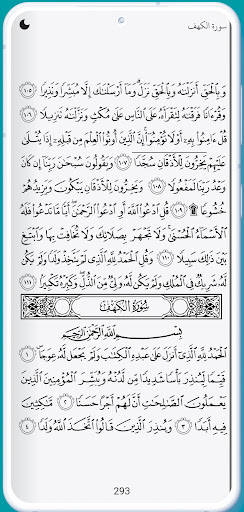 سورة الكهف
وَبِالْحَقِّ أَنزَلْنَاهُ وَبِالْحَقِّ نَزَلَ وَمَا أَرْسَلْنَاكَ إِلَّا مُبَشِّرًا وَنَذِيرًا ١٠٥
وَقُرْءَانًا فَرَقْنَاهُ لِتَقْرَأَهُ عَلَى النَّاسِ عَلَى مُكْثٍ وَنَزَّلْنَاهُ تَنزِيلًا ١٠٦
قُلْ ءَامِنُوا بِهِ أَوْ لَا تُؤْمِنُوا إِنَّ الَّذِينَ أُوتُوا الْعِلْمَ مِن قَبْلِهِ إِذَا يُتْلَى
عَلَيْهِمْ يَخِرُّونَ لِلْأَذْقَانِ سُجَّدًا ١٠٧ وَيَقُولُونَ سُبْحَانَ رَبِّنَا إِن كَانَ
وَعْدُ رَبِّنَا لَمَفْعُولًا ١٠٨ وَيَخِرُّونَ لِلْأَذْقَانِ يَبْكُونَ وَيَزِيدُهُمْ
خُشُوعًا ١٠٩ قُلِ ادْعُوا اللَّهَ أَوِ ادْعُوا الرَّحْمَنَ أَيًّا مَّا تَدْعُوا فَلَهُ
الْأَسْمَاءُ الْحُسْنَى وَلَا تَجْهَرْ بِصَلَاتِكَ وَلَا تُخَافِتْ بِهَا وَابْتَغِ
بَيْنَ ذَلِكَ سَبِيلًا ١١٠ وَقُلِ الْحَمْدُ لِلَّهِ الَّذِي لَمْ يَتَّخِذْ وَلَدًا وَلَمْ يَكُن
لَّهُ شَرِيكٌ فِي الْمُلْكِ وَلَمْ يَكُن لَّهُ وَلِيٌّ مِّنَ الذُّلِّ وَكَبِّرْهُ تَكْبِيرًا ١١١
سُورَةُ الْكَهْفِ
بِسْمِ اللَّهِ الرَّحْمَنِ الرَّحِيمِ
الْحَمْدُ لِلَّهِ الَّذِي أَنزَلَ عَلَى عَبْدِهِ الْكِتَابَ وَلَمْ يَجْعَل لَّهُ عِوَجًا ١
قَيِّمًا لِّيُنذِرَ بَأْسًا شَدِيدًا مِّن لَّدُنْهُ وَيُبَشِّرَ الْمُؤْمِنِينَ الَّذِينَ
يَعْمَلُونَ الصَّالِحَاتِ أَنَّ لَهُمْ أَجْرًا حَسَنًا ٢ مَّاكِثِينَ
فِيهِ أَبَدًا ٣ وَيُنذِرَ الَّذِينَ قَالُوا اتَّخَذَ اللَّهُ وَلَدًا ٤
293